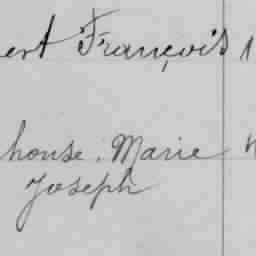 ert François
house. Marie
Joseph